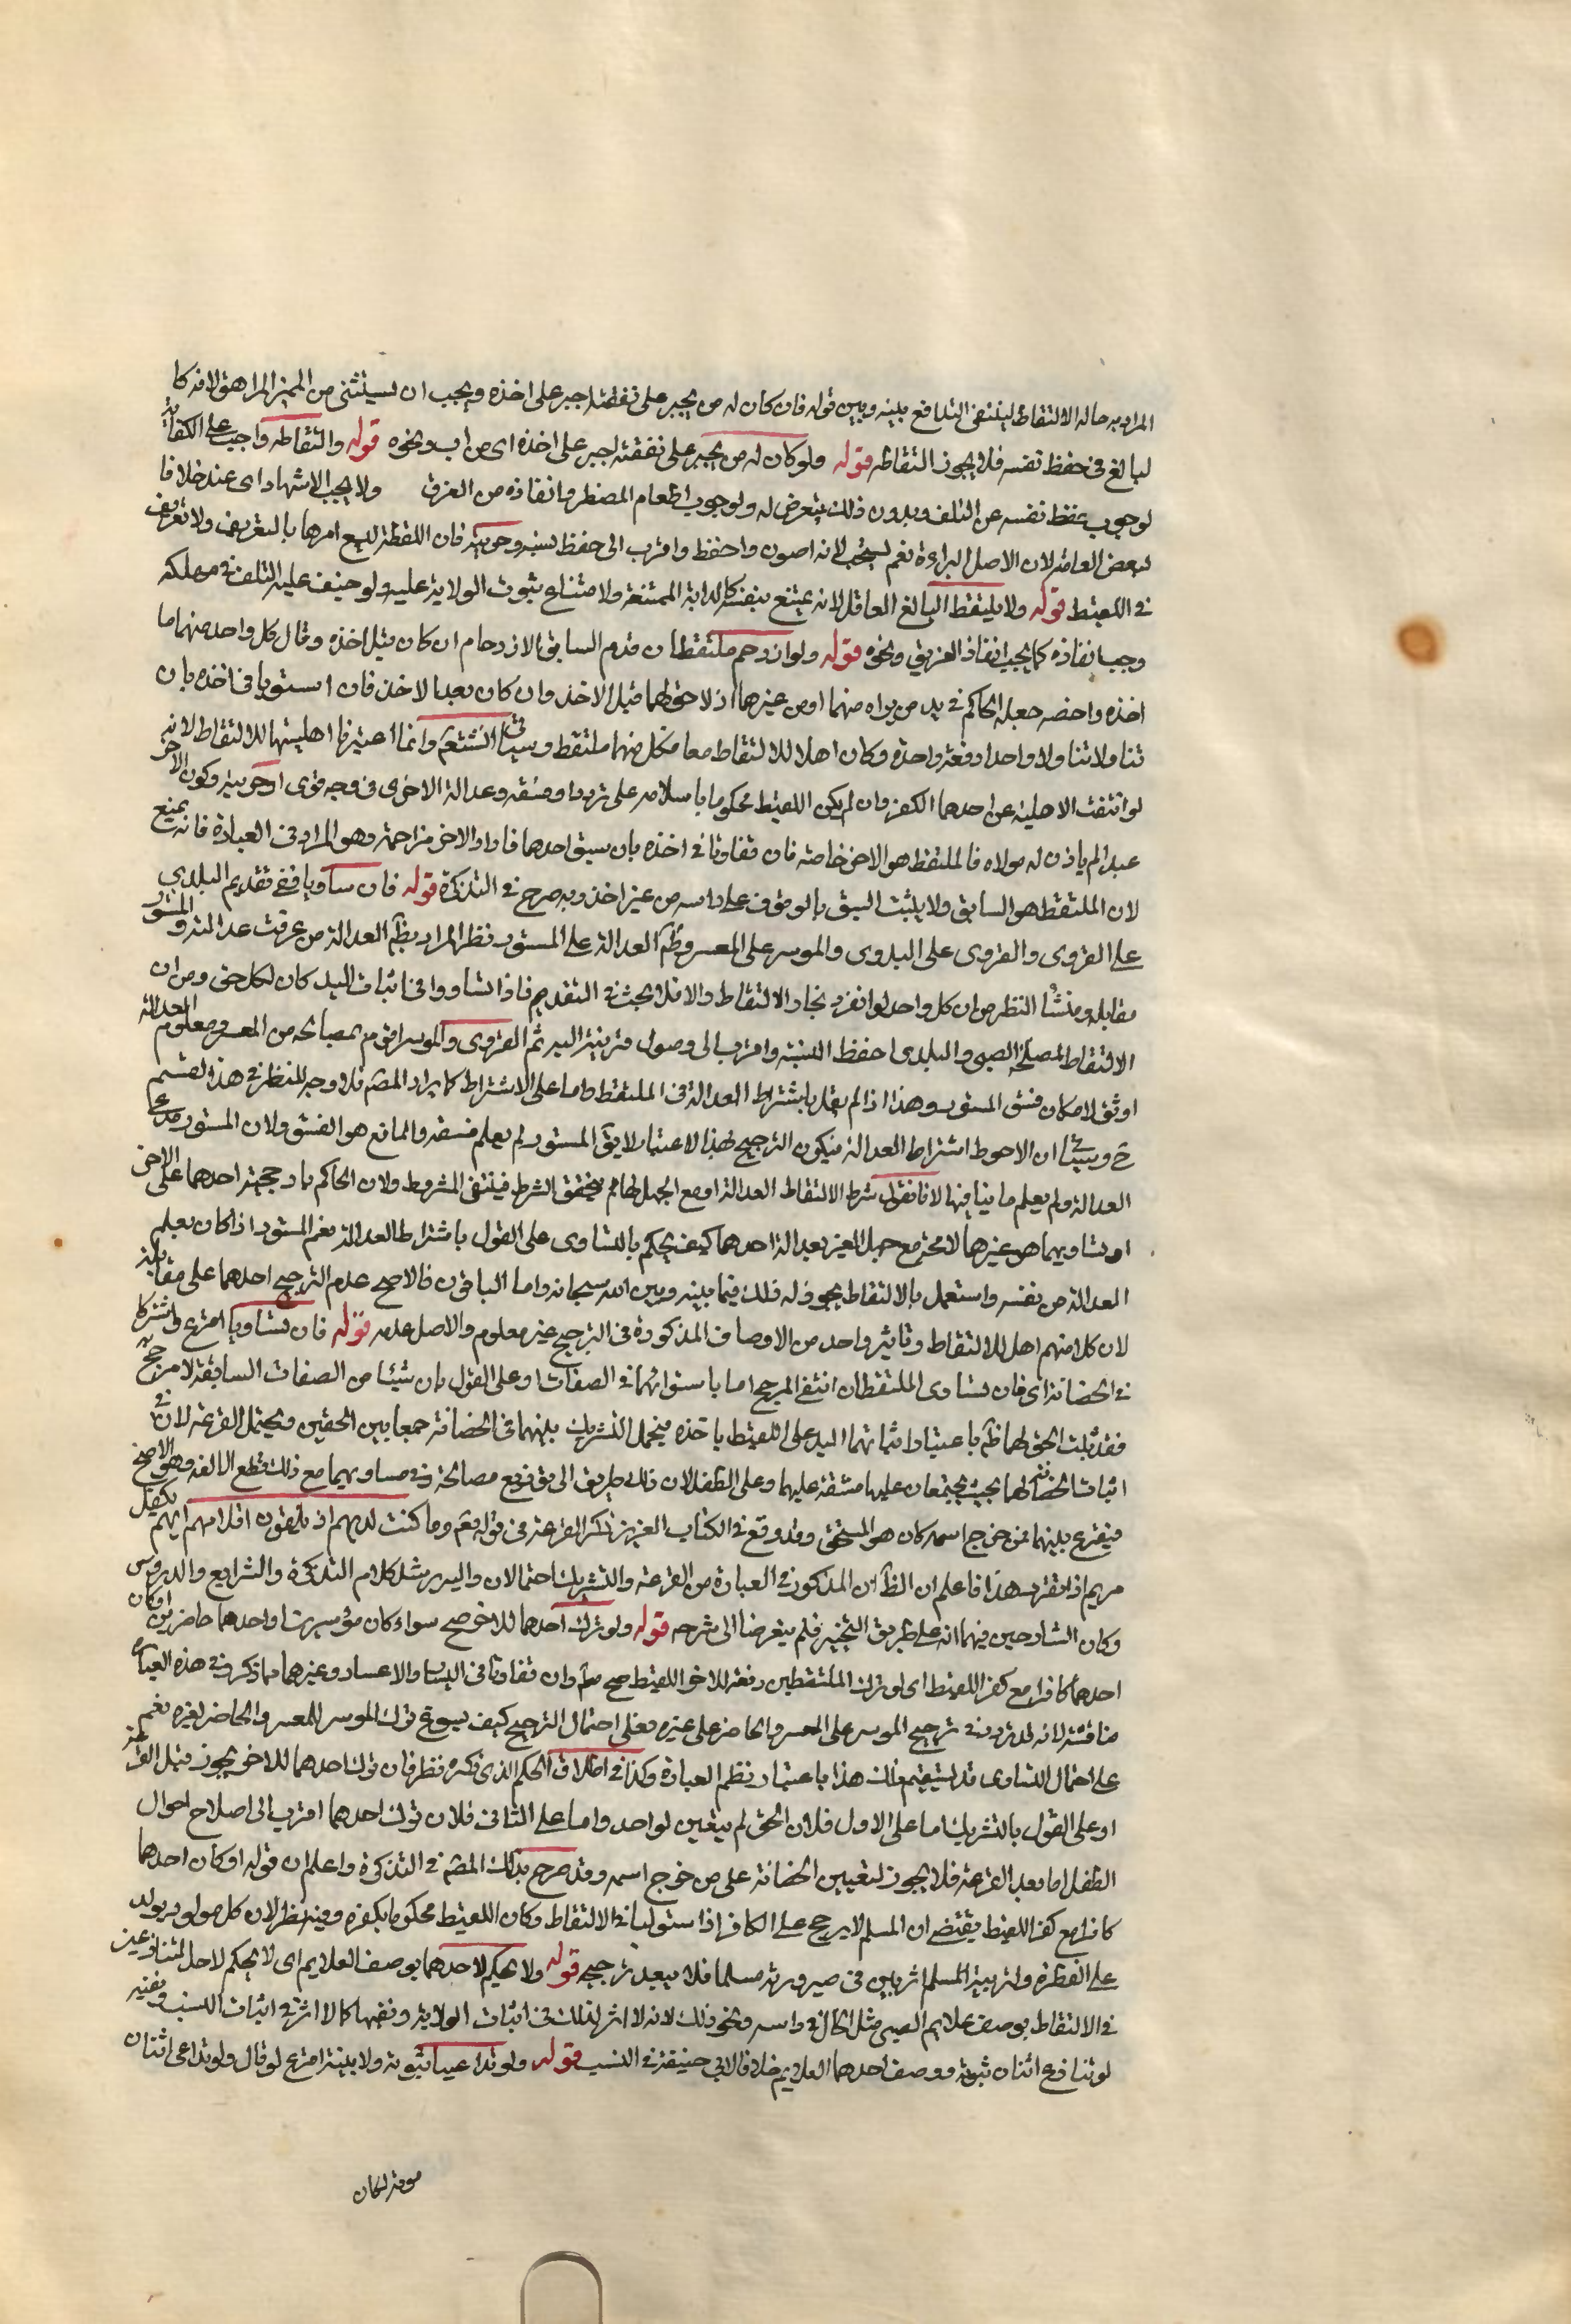 المراد به حالة الالتقاط لينتفى التدافع بينه وبين قوله فان كان له من يجبر على نفقته اجبر على اخذه ويجب ان يستثنى من المميز المراهق لانه كا
لبالغ فى حفظ نفسه فلا يجوز التقاطه قوله ولو كان له من يجبر على نفقته اجبر على اخذه اى من اب ونحوه قوله والتقاطه واجب على الكفاية
لوجوب حفظ نفسه عن التلف وبدون ذلك يتعرض له ولوجوب اطعام المضطر وانقاذه من الغرق ولا يجب الاشهاد اى عندنا خلافا
لبعض العامة لان الاصل البراءة نعم يستحب لانه اصون واحفظ واقرب الى حفظ نسبه وحريته فان اللقطة يشيع امرها بالتعريف ولا تعريف
فى اللقيط قوله ولا يلتقط البالغ العاقل لانه يمتنع بنفسه كالدابة الممتنعة ولامتناع ثبوت الولاية عليه ولو خيف عليه التلف فى مهلكة
وجب انقاذه كما يجب انقاذ الغريق ونحوه قوله ولو ازدحم ملتقطان قدم السابق الازدحام ان كان قبل اخذه وقال كل واحد منهما انا
اخذه واحضنه جعله الحاكم فى يد من يراه منهما او من غيرهما اذ لا حق لهما قبل الاخذ وان كان بعد الاخذ فان استويا فى اخذه بان
تناولاه تناولا واحدا دفعة واحدة وكان اهلا للالتقاط معا فكل منهما ملتقط وسياتى وانما اعتبرنا اهليتهما للالتقاط لانه
لو انتفت الاهلية عن احدهما الكفر وان لم يكن اللقيط محكوما باسلامه على تردد او فسقه وعدالة الاخرى فى وجه قوى او حريته وكون الاخر
عبدا لم ياذن له مولاه فالملتقط هو الاخر خاصة فان تفاوتا فى اخذه بان سبق احدهما فاراد الاخر مزاحمته وهو المراد فى العبارة فانه يمنع
لان الملتقط هو السابق ولا يثبت السبق بالوقوف على راسه من غير اخذ وبه صرح فى التذكرة قوله فان تساويا ففى تقديم البلدى
على القروى والقروى على البدوى والموسر على المعسر وظم العدالة على المستور نظر المراد بظم العدالة من عرفت عدالته والمستور
مقابله ومنشأ النظر من ان كل واحد لو انفرد لجاز الالتقاط والا فلا بحث فى التقديم فاذا تساووا فى اثبات اليد كان لكل حق ومن ان
الالتقاط لمصلحة الصبى والبلدى احفظ لنسبه واقرب الى وصول قريبه اليه ثم القروى والموسر اقوم بمصالحه من المعسر ومعلوم العدالة
اوثق لامكان فسق المستور وهذا اذا لم نقل باشتراط العدالة فى الملتقط واما على الاشتراط كما يراد المصم فلا وجه للنظر فى هذا القسم
ح وسياتى ان الاحوط اشتراط العدالة فيكون الترجيح لهذا الاعتبار لا يق المستور لم يعلم فسقه والمانع هو الفسق ولان المستور مدعى
العدالة ولم يعلم ما ينافيها لانا نقول شرط الالتقاط العدالة او مع الجهل بها لم يتحقق الشرط فينتفى المشروط ولان الحاكم نادرجيحه احدهما على الاخر
او تساويهما هو غيرهما لا محة مع جهل الغير بعدالة احدهما كيف يحكم بالتساوى على القول باشتراط العدالة نعم المستور اذا كان يعلم
العدالة من نفسه واستعمل بالالتقاط يجوز له ذلك فيما بينه وبين الله سبحانه واما الباقون فالاصح عدم الترجيح احدهما على مقابله
لان كلا منهم اهل للالتقاط وتاثير واحد من الاوصاف المذكورة فى الترجيح غير معلوم والاصل عدمه قوله فان تساويا اقرع واشتركا
فى الحضانة اى فان تساوى الملتقطان انتفى المرجح اما باستوائهما فى الصفات او على القول بان شيئا من الصفات السابقة لا مرجح
فقد ثبت الحق لهما ظم باعتبار اثباتهما اليد على اللقيط باخذه فيحتمل التشريك بينهما فى الحضانة جمعا بين الحقين ويحتمل القرعة لان فى
اثبات الحضانة لهما بحيث يجتمعان عليها مشقة عليهما وعلى الطفل لان ذلك طريق الى وقوع مصالحه وفى مساويهما مع ذلك قطع الالفة وهو الاصح
فيقرع بينهما فمن خرج اسمه كان هو المستحق وقد وقع فى الكتاب العزيز ذكر القرعة فى قوله تعم وما كنت لديهم اذ يلقون اقلامهم ايهم يكفل
مريم اذا تقرر هذا فاعلم ان الظم ان المذكور فى العبارة من القرعة والتشريك احتمالان واليه يرشد كلام التذكرة والشرايع والدروس
وكان الشارحين فهما انه على طريق التخيير فلم يتعرضا الى شرحه قوله ولو ترك احدهما للاخر صح سواء كان موسرين او احدهما حاضرين او كان
احدهما كافرا مع كفر اللقيط اى لو ترك الملتقطين رفعة للاخر اللقيط صح سلم وان تفاوتا فى اليسار والاعسار وغيرهما مما ذكر وفى هذه العبارة
مناقشة لانه قد تردد فى ترجيح الموسر على المعسر والحاضر على غيره فعلى احتمال الترجيح كيف يسوغ ترك الموسر للمعسر والحاضر لغيره نعم
على احتمال التساوى قد يستقيم ذلك هذا باعتبار نظم العبارة وكذا فى اطلاق الحكم الذى ذكره نظر فان ترك احدهما للاخر يجوز قبل القرعة
او على القول بالتشريك اما على الاول فلان الحق لم يتعين لواحد واما على الثانى فلان ترك احدهما اقرب الى اصلاح احوال
الطفل اما بعد القرعة فلا يجوز لتعيين الحضانة على من خرج اسمه وقد صرح بذلك المصم فى التذكرة واعلم ان قوله او كان احدهما
كافرا مع كفر اللقيط يقتضى ان المسلم لا يرجح على الكافر اذا استوليا فى الالتقاط وكان اللقيط محكوما بكفره وفيه نظر لان كل مولود يولد
على الفطرة ولتربية المسلم اثر بين فى صيرورته مسلما فلا يبعد ترجيحه قوله ولا يحكم لاحدهما بوصف العلايم اى لا يحكم لاحد المتنازعين
فى الالتقاط بوصف علايم الصبى مثل الخال فى راسه ونحو ذلك لانه لا اثر لذلك فى اثبات الولاية ونفيها كما لا اثر فى اثبات النسب ونفيه
لو تنازع اثنان بنوته ووصف احدهما العلايم خلافا لابى حنيفة فى النسب قوله ولو تداعيا بنوته ولا بينة اقرع لو قال ولو تداعى اثنان